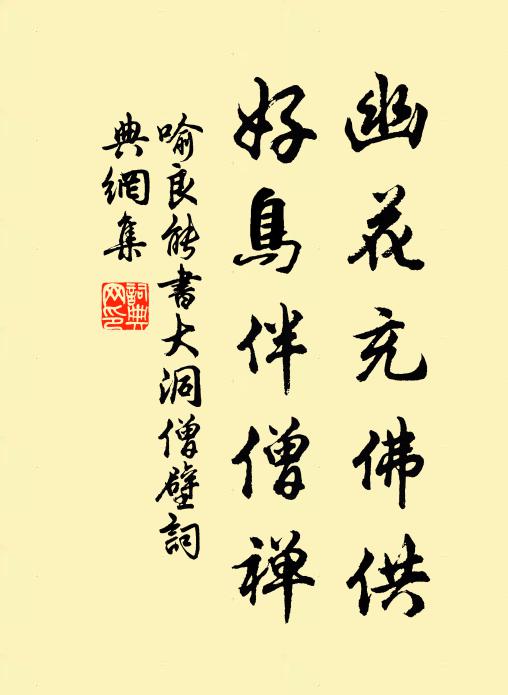 幽花充佛供
好鳥伴僧禅
喻良能書大洞僧壁詞
典網集
詞典网印